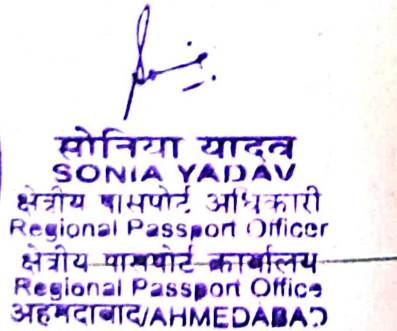 सोनिया यादव
SONIA YADAV
क्षेत्रीय पासपोर्ट अधिकारी
Regional Passport Officer
क्षेत्रीय पासपोर्ट कार्यालय
Regional Passport Office
अहमदाबाद/AHMEDABAD